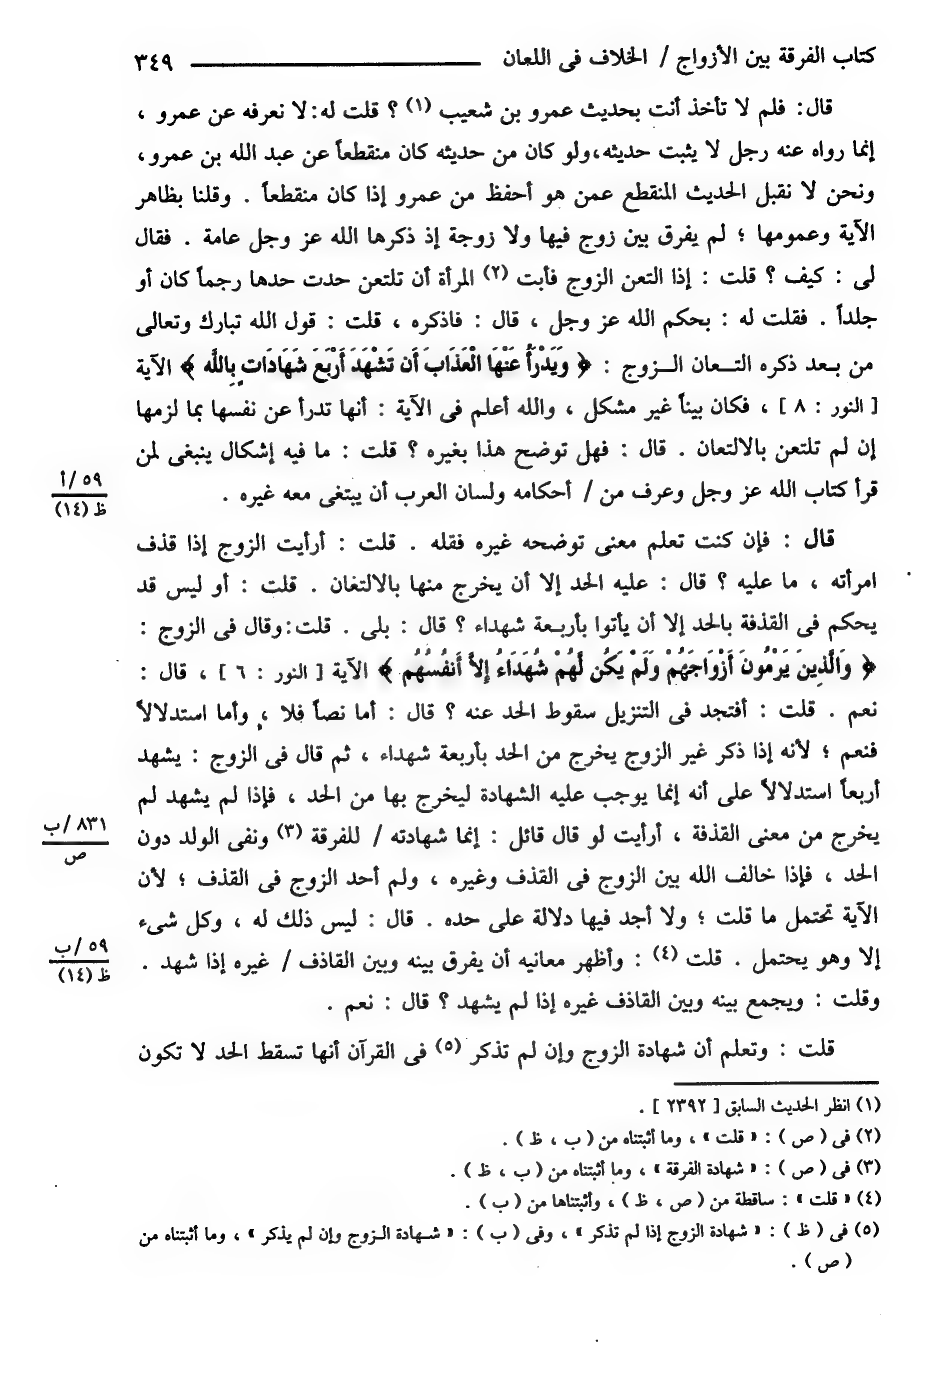 كتاب الفرقة بين الأزواج / الخلاف فى اللعان ــــــــــــ ٣٤٩
قال: فلم لا تأخذ أنت بحديث عمرو بن شعيب (١) ؟ قلت له: لا نعرفه عن عمرو ،
إنما رواه عنه رجل لا يثبت حديثه، ولو كان من حديثه كان منقطعاً عن عبد الله بن عمرو،
ونحن لا نقبل الحديث المنقطع عمن هو أحفظ من عمرو إذا كان منقطعاً . وقلنا بظاهر
الآية وعمومها ؛ لم يفرق بين زوج فيها ولا زوجة إذ ذكرها الله عز وجل عامة . فقال
لى : كيف ؟ قلت : إذا التعن الزوج فأبت (٢) المرأة أن تلتعن حدت حدها رجماً كان أو
جلداً . فقلت له : بحكم الله عز وجل ، قال : فاذكره ، قلت : قول الله تبارك وتعالى
من بعد ذكره التــعان الــزوج : ﴿ وَيَدْرَأُ عَنْهَا الْعَذَابَ أَن تَشْهَدَ أَرْبَعَ شَهَادَاتٍ بِاللَّه ﴾ الآية
[ النور : ٨ ] ، فكان بيناً غير مشكل ، والله أعلم فى الآية : أنها تدرأ عن نفسها بما لزمها
إن لم تلتعن بالالتعان . قال : فهل توضح هذا بغيره ؟ قلت : ما فيه إشكال ينبغى لمن
قرأ كتاب الله عز وجل وعرف من / أحكامه ولسان العرب أن يبتغى معه غيره .
٥٩ /أ
ظ (١٤)
قال : فإن كنت تعلم معنى توضحه غيره فقله . قلت : أرأيت الزوج إذا قذف
امرأته ، ما عليه ؟ قال : عليه الحد إلا أن يخرج منها بالالتغان . قلت : أو ليس قد
يحكم فى القذفة بالحد إلا أن يأتوا بأربعة شهداء ؟ قال : بلى . قلت: وقال فى الزوج :
﴿ وَالَّذِينَ يَرْمُونَ أَزْوَاجَهُمْ وَلَمْ يَكُن لَّهُمْ شُهَدَاءُ إِلاَّ أَنفُسُهُم ﴾ الآية [ النور : ٦ ] ، قال :
نعم . قلت : أفتجد فى التنزيل سقوط الحد عنه ؟ قال : أما نصاً فلا ، وأما استدلالاً
فنعم ؛ لأنه إذا ذكر غير الزوج يخرج من الحد بأربعة شهداء ، ثم قال فى الزوج : يشهد
أربعاً استدلالاً على أنه إنما يوجب عليه الشهادة ليخرج بها من الحد ، فإذا لم يشهد لم
يخرج من معنى القذفة ، أرأيت لو قال قائل : إنما شهادته / للفرقة (٣) ونفى الولد دون
٨٣١ /ب
ص
الحد ، فإذا خالف الله بين الزوج فى القذف وغيره ، ولم أحد الزوج فى القذف ؛ لأن
الآية تحتمل ما قلت ؛ ولا أجد فيها دلالة على حده . قال : ليس ذلك له ، وكل شىء
إلا وهو يحتمل . قلت (٤) : وأظهر معانيه أن يفرق بينه وبين القاذف / غيره إذا شهد .
٥٩ /ب
ظ (١٤)
وقلت : ويجمع بينه وبين القاذف غيره إذا لم يشهد ؟ قال : نعم .
قلت : وتعلم أن شهادة الزوج وإن لم تذكر (٥) فى القرآن أنها تسقط الحد لا تكون
(١) انظر الحديث السابق [ ٢٣٩٢ ] .
(٢) فى ( ص ) : « قلت » ، وما أثبتناه من ( ب ، ظ ) .
(٣) فى ( ص ) : « شهادة الفرقة » ، وما أثبتناه من ( ب ، ظ ) .
(٤) « قلت » : ساقطة من ( ص ، ظ ) ، وأثبتناها من ( ب ) .
(٥) فى ( ظ ) : « شهادة الزوج إذا لم تذكر » ، وفى ( ب ) : « شـهادة الـزوج وإن لم يذكر » ، وما أثبتناه من
( ص ) .